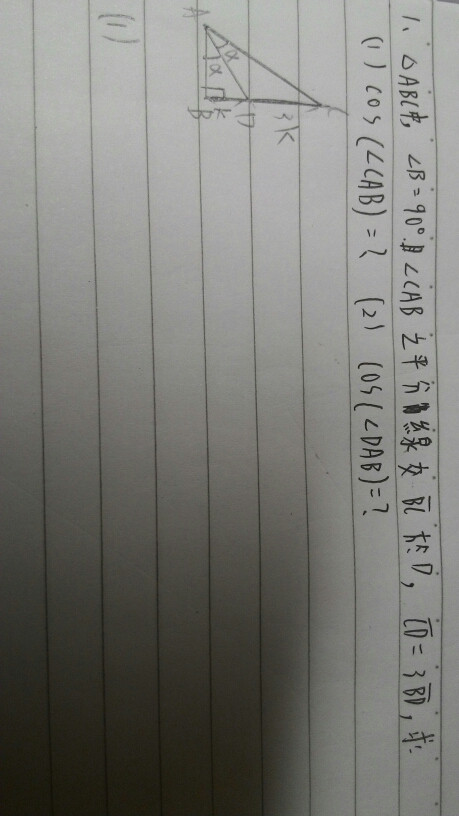 1、△ABC中, ∠B=90°, ∠CAB之平分線交 BC 於 D, CD=3BD, 求:
(1) cos(∠CAB)=? (2) cos(∠DAB)=?
A
α
α
B
K
D
3K
C
(1)